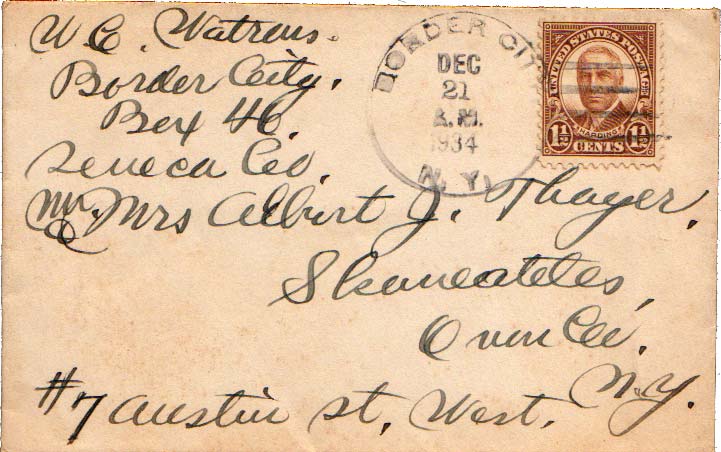 W. C. Watrous.
Border City.
Box 46.
Seneca Co.
BORDER CITY
DEC
21
A.M.
1934
N.Y.
UNITED STATES POSTAGE
HARDING
1½ CENTS 1½
Mr. Mrs Albert J. Thayer.
Skaneateles,
Onon Co.
N.Y.
#7 Austin St. West.